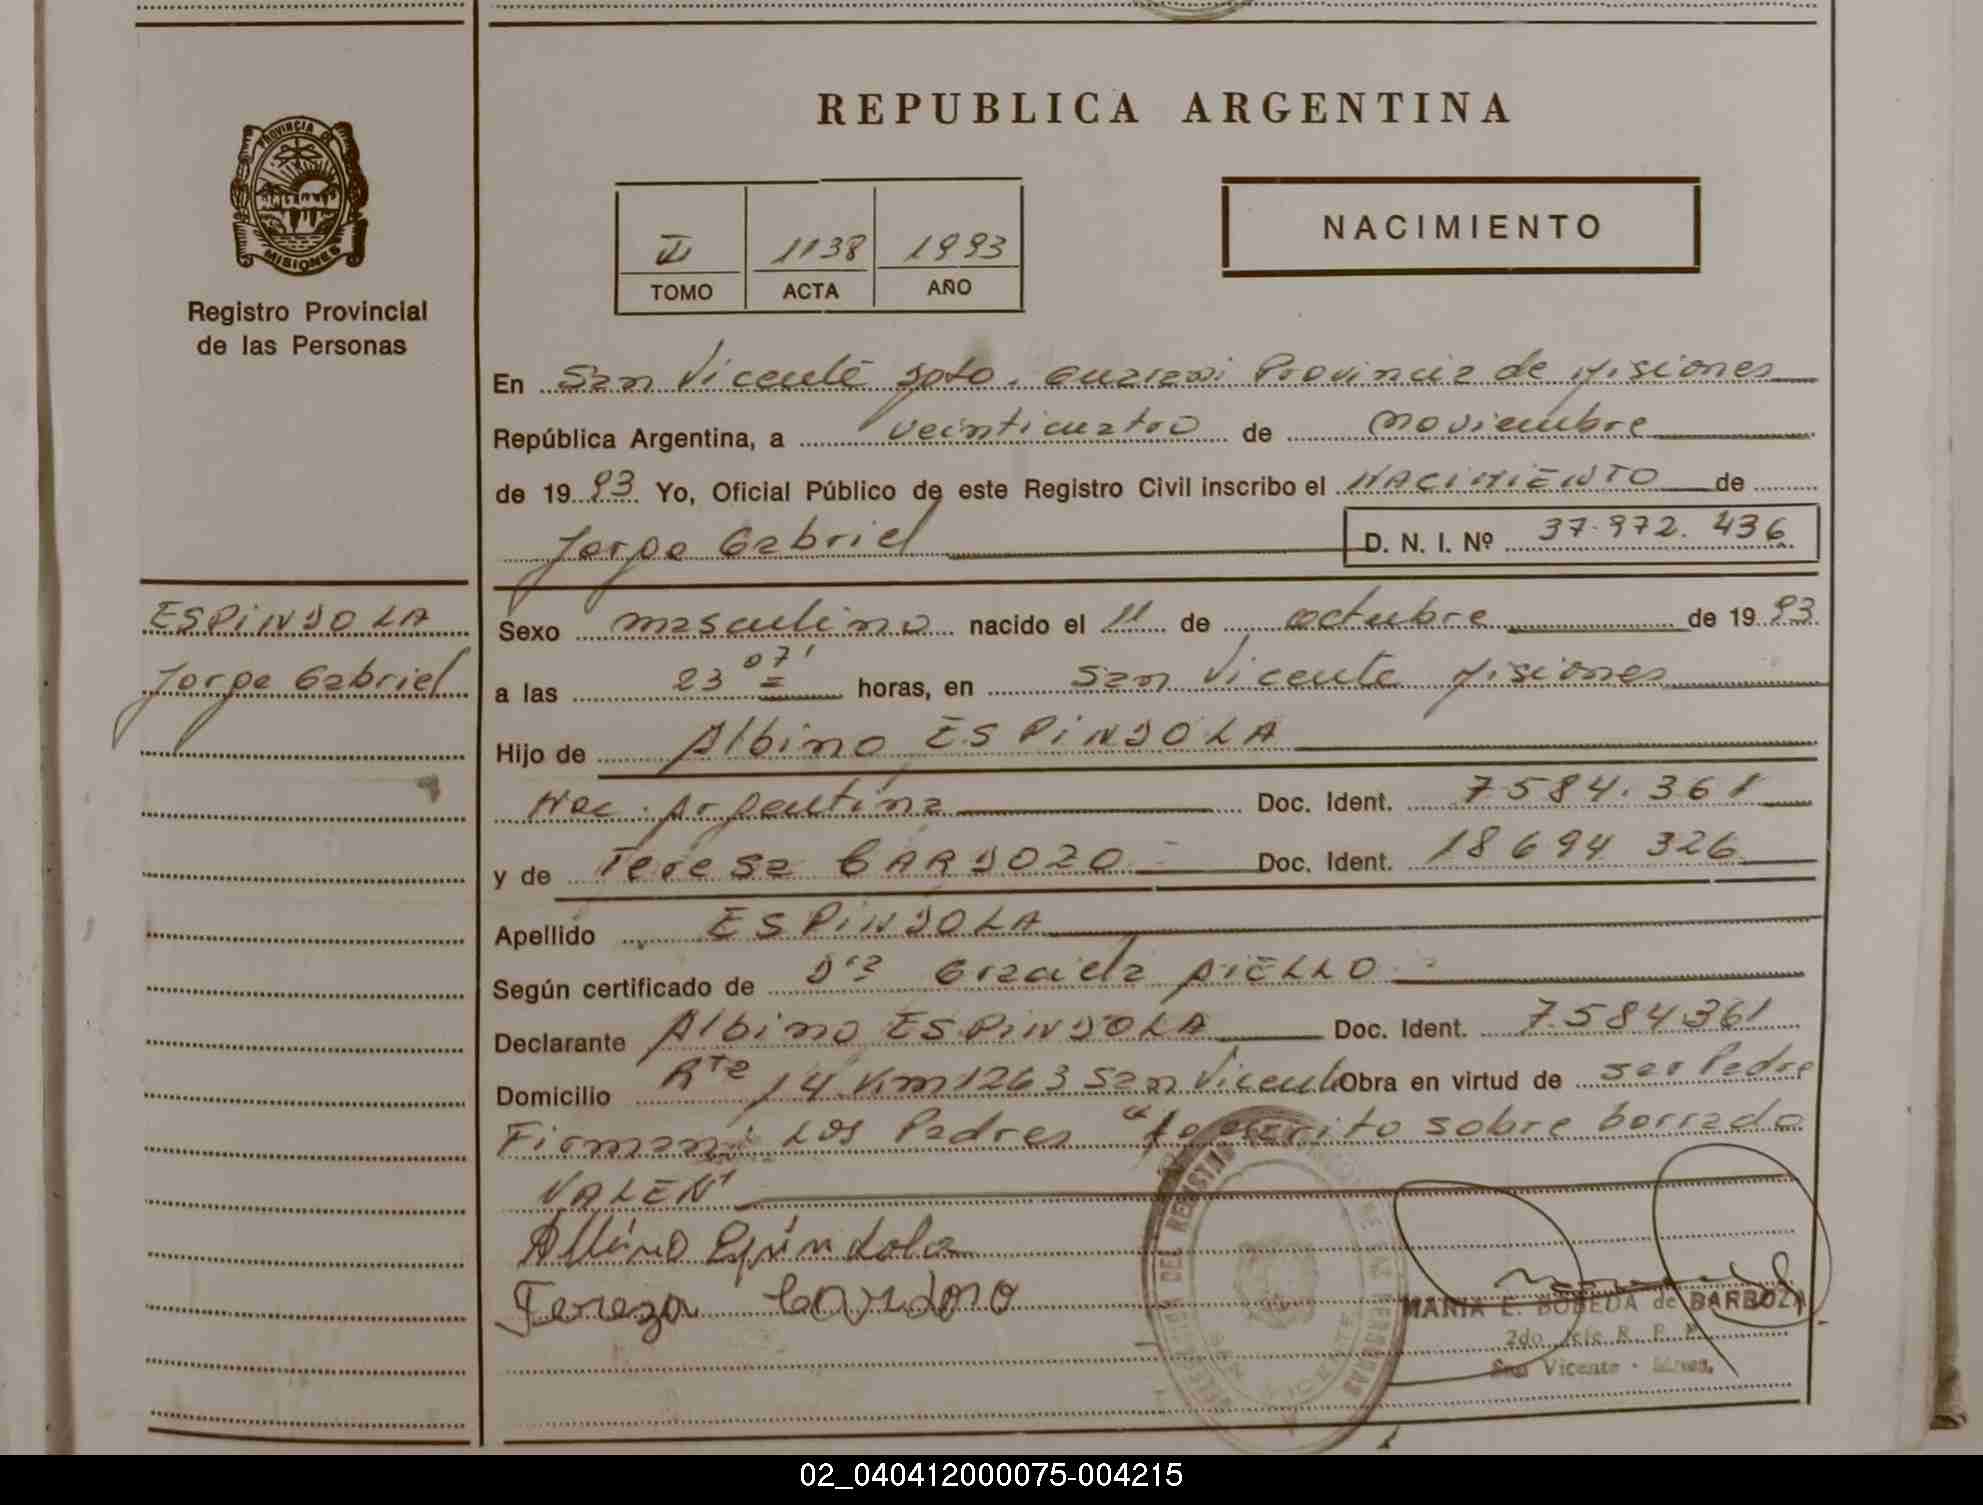 REPUBLICA ARGENTINA
PROVINCIA DE
MISIONES
Registro Provincial
de las Personas
1138 1993
TOMO ACTA AÑO
NACIMIENTO
En San Vicente Dpto. Guarani Provincia de Misiones
República Argentina, a veinticuatro de noviembre
de 19 93 Yo, Oficial Público de este Registro Civil inscribo el NACIMIENTO de
Jorge Gabriel D. N. I. Nº 37.972.436
ESPINDOLA
Jorge Gabriel
Sexo masculino nacido el 11 de octubre de 19 93
a las 23 07' horas, en San Vicente Misiones
Hijo de Albino ESPINDOLA
Nac. Argentina Doc. Ident. 7584.361
y de Teresa CARDOZO Doc. Ident. 18694 326
Apellido ESPINDOLA
Según certificado de Dra Graciela AIELLO
Declarante Albino ESPINDOLA Doc. Ident. 7584361
Domicilio Rta 14 Km 1263 San Vicente Obra en virtud de ser Padre
Firman: Los Padres "Lo escrito sobre borrado
VALEN"
Albino Espindola
Tereza Cardozo
MARIA E. BOBEDA de BARBOZA
2do Jefe R. P. P.
San Vicente - Mnes.
02_040412000075-004215